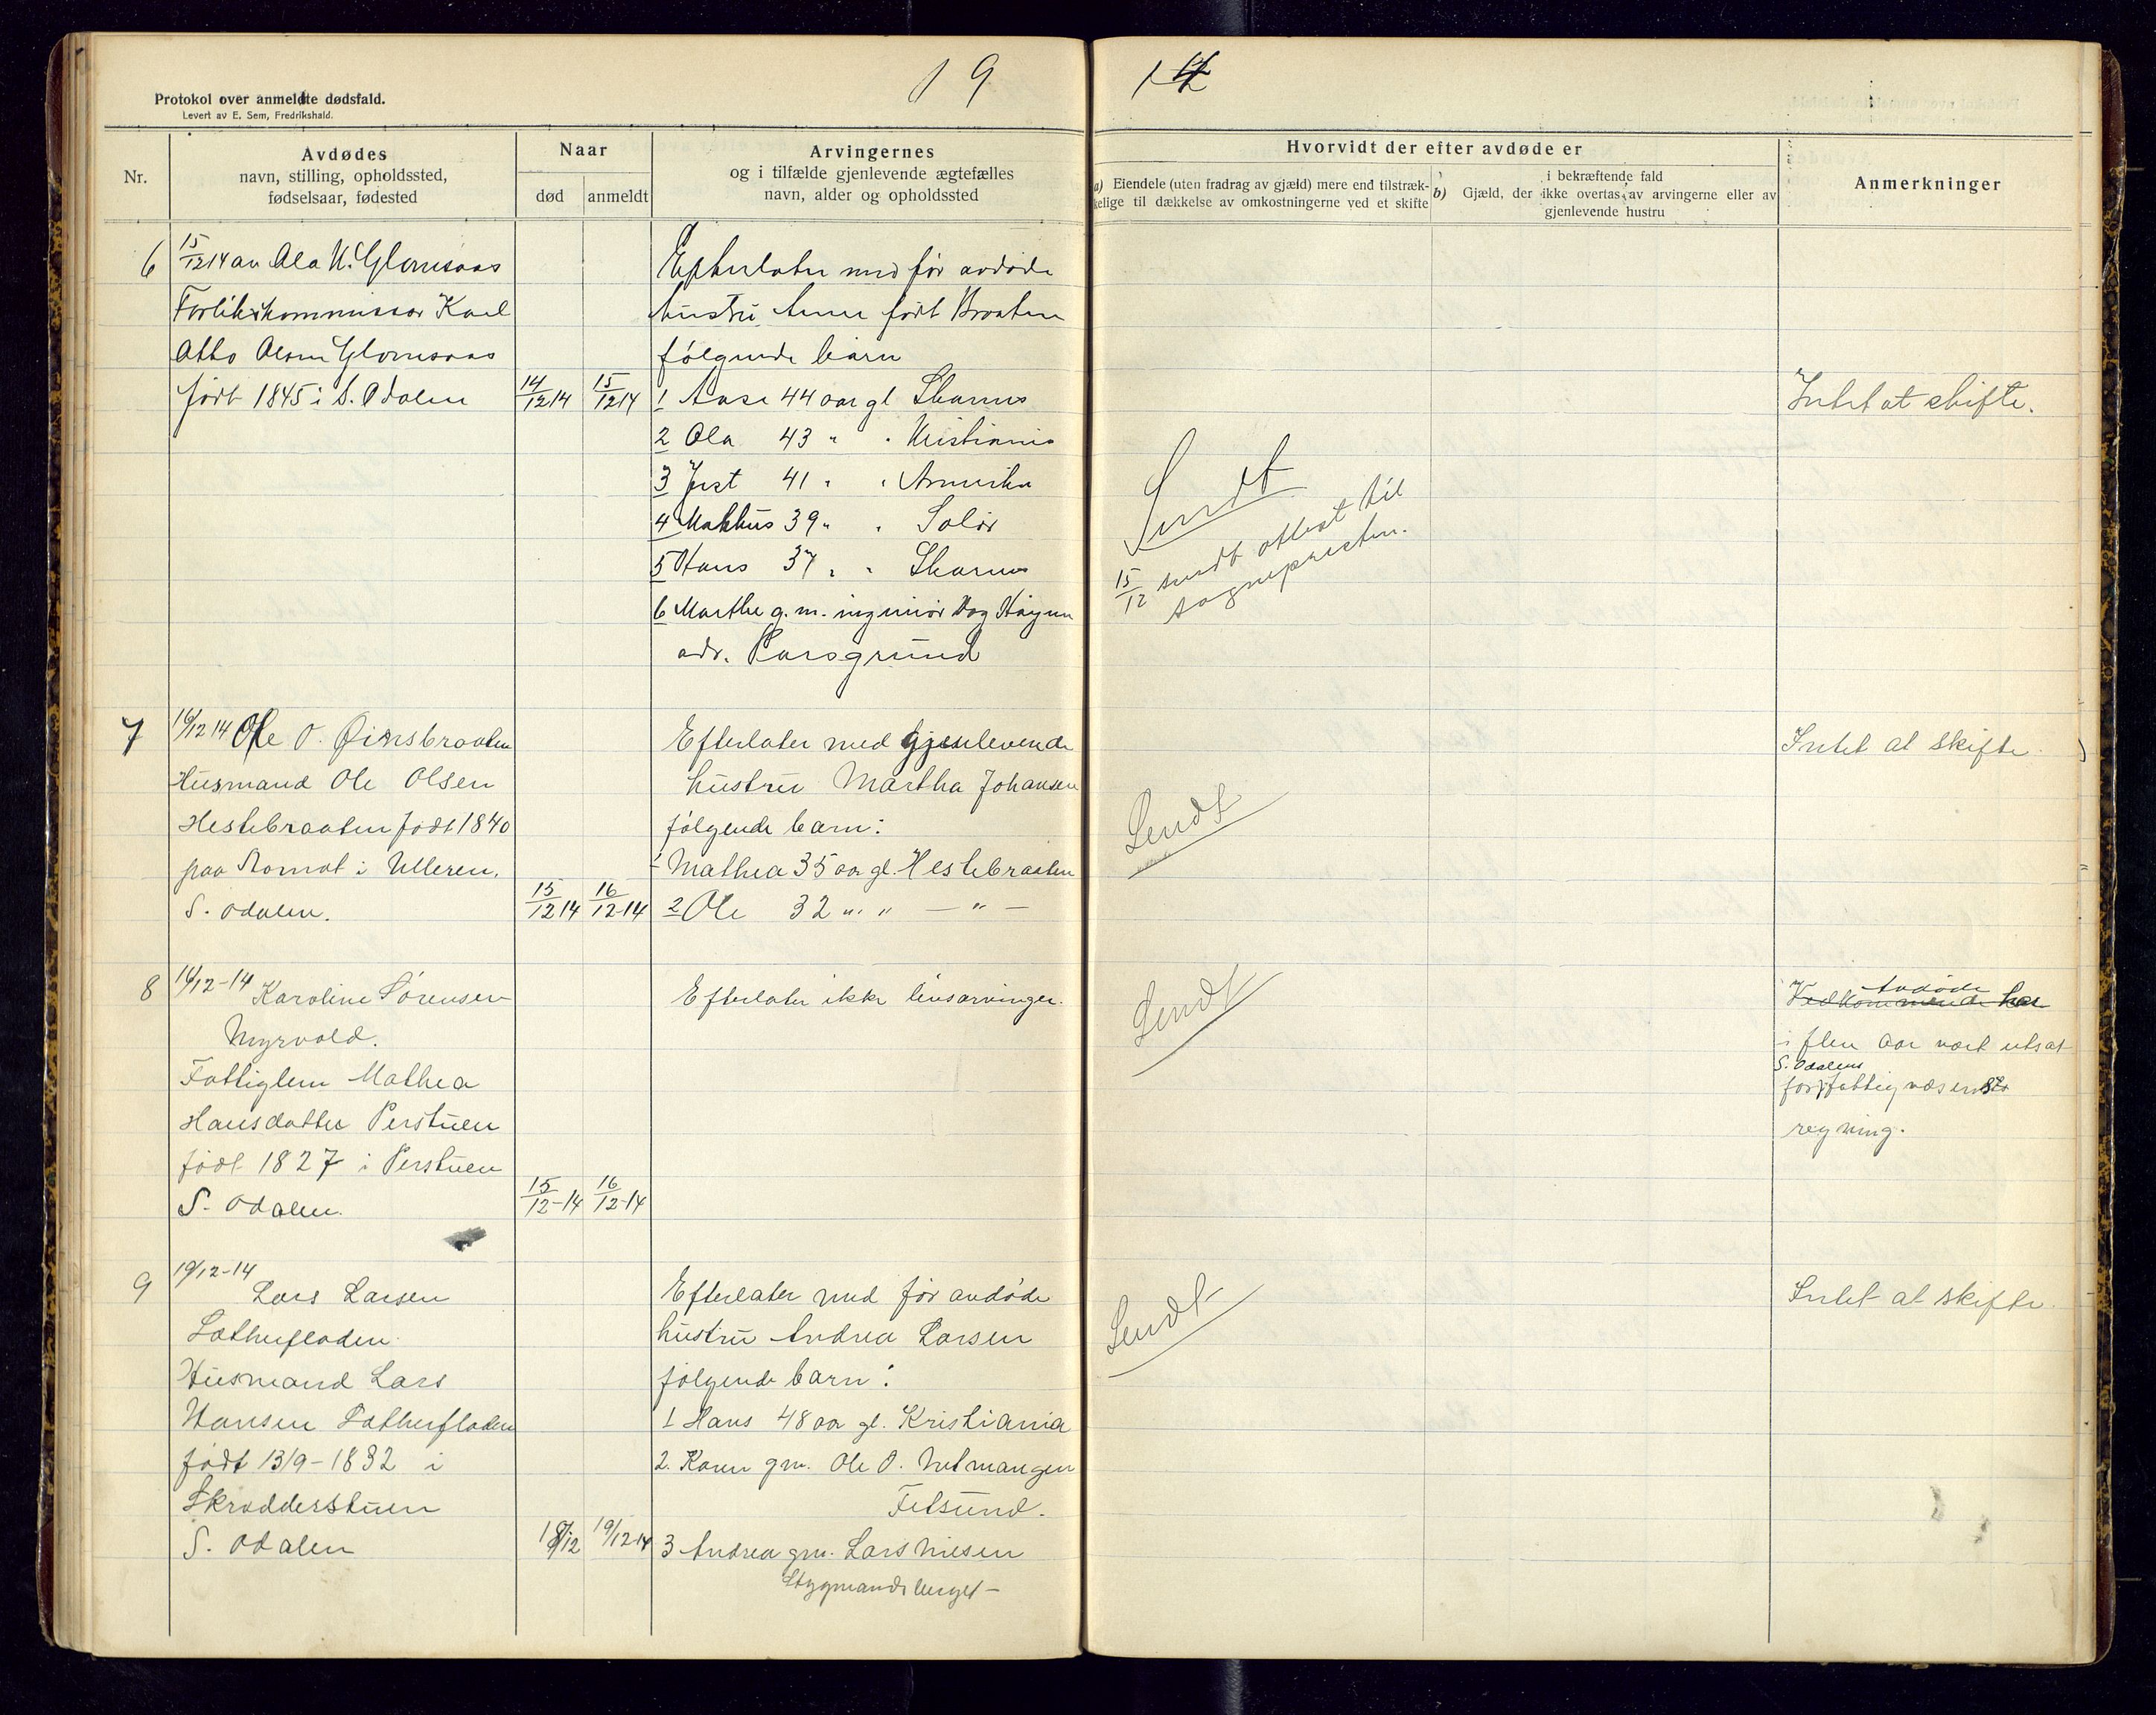 19 14
Protokol over anmeldte dødsfald.
Levert av E. Sem, Fredrikshald.
Nr.
Avdødes
navn, stilling, opholdssted,
fødselsaar, fødested
Naar
død
anmeldt
Arvingernes
og i tilfælde gjenlevende ægtefælles
navn, alder og opholdssted
Hvorvidt der efter avdøde er
a) Eiendele (uten fradrag av gjæld) mere end tilstræk-
kelige til dækkelse av omkostningerne ved et skifte
i bekræftende fald
b) Gjæld, der ikke overtas av arvingerne eller av
gjenlevende hustru
Anmerkninger
6
15/12 14 av Ola K. Glomsaas
Forlikskommissær Karl
Otto Olsen Glomsaas
født 1845 i S. Odalen
14/12 14
15/12 14
Efterlater med før avdøde
hustru Anne født Braaten
følgende barn
1 Aase 44 aar gl Skarnes
2 Ola 43 " " Kristiania
3 Just 41 " " Amerika
4 Makhus 39 " " Solør
5 Hans 37 " " Skarnes
6 Marthe g. m. ingeniør Dag
adr. Porsgrund
Sendt
15/12 sendt attest til
sognepresten.
Intet at skifte.
7
16/12 14 Ole O.
Husmand Ole Olsen
Hestebraaten født 1840
paa i Ulleren.
S. Odalen.
15/12 14
16/12-14
Efterlater med gjenlevende
hustru Martha Johansen
følgende barn:
1 Mathea 35 aar gl. Hestebraaten
2 Ole 32 " " — " —
Sendt
Intet at skifte.
8
16/12-14 Karoline Sørensen
Myrvold.
Fattiglem Mathea
Hansdatter Perstuen
født 1827 i Perstuen
S. Odalen.
15/12-14
16/12-14
Efterlater ikke livsarvinger.
Sendt
Avdøde
Vedkommende har
i flere aar vært utsat
S. Odalens
for fattigvæsens
regning.
9
19/12-14
Lars Larsen
Husmand Lars
Hansen
født 13/9-1832 i
Skrædderstuen
S. Odalen
18/12
19/12 14
Efterlater med før avdøde
hustru Andrea Larsen
følgende barn:
1 Hans 48 aar gl. Kristiania
2. Karen gm. Ole O.
Fetsund.
3 Andrea gm. Lars
Stygmandsberget –
Sendt
Intet at skifte.